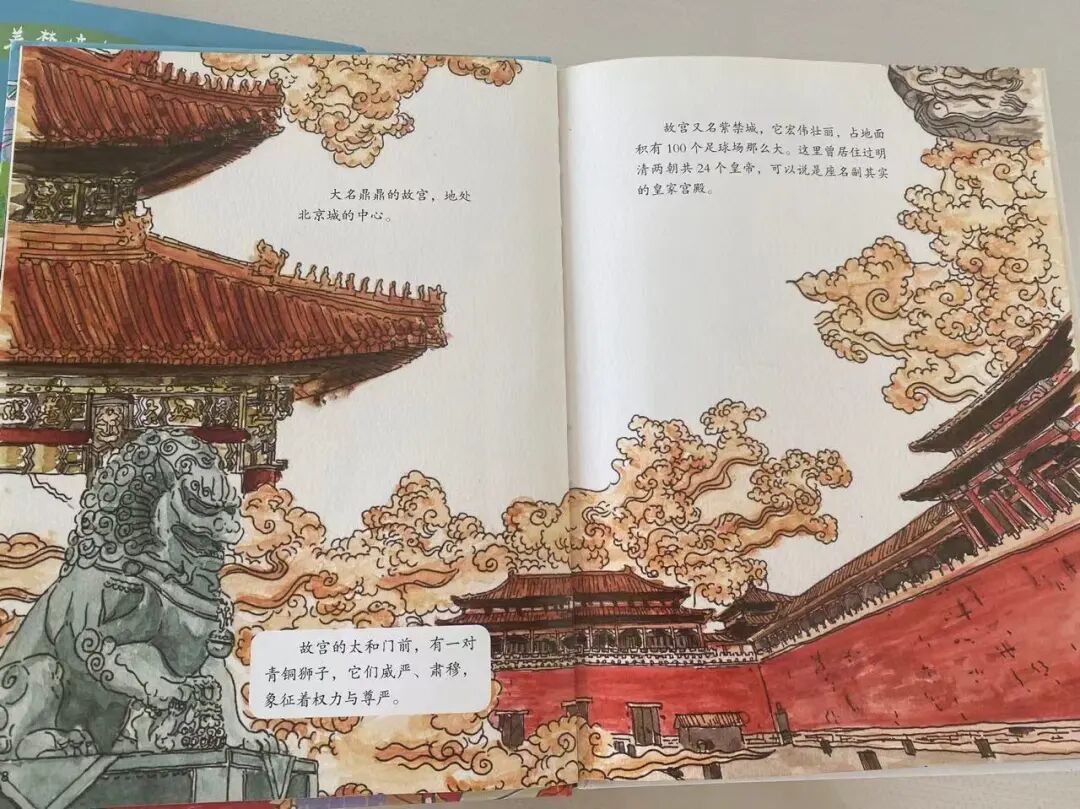 大名鼎鼎的故宫，地处
北京城的中心。
故宫的太和门前，有一对
青铜狮子，它们威严、肃穆，
象征着权力与尊严。
8
故宫又名紫禁城，它宏伟壮丽，占地面
积有 100 个足球场那么大。这里曾居住过明
清两朝共 24 个皇帝，可以说是座名副其实
的皇家宫殿。